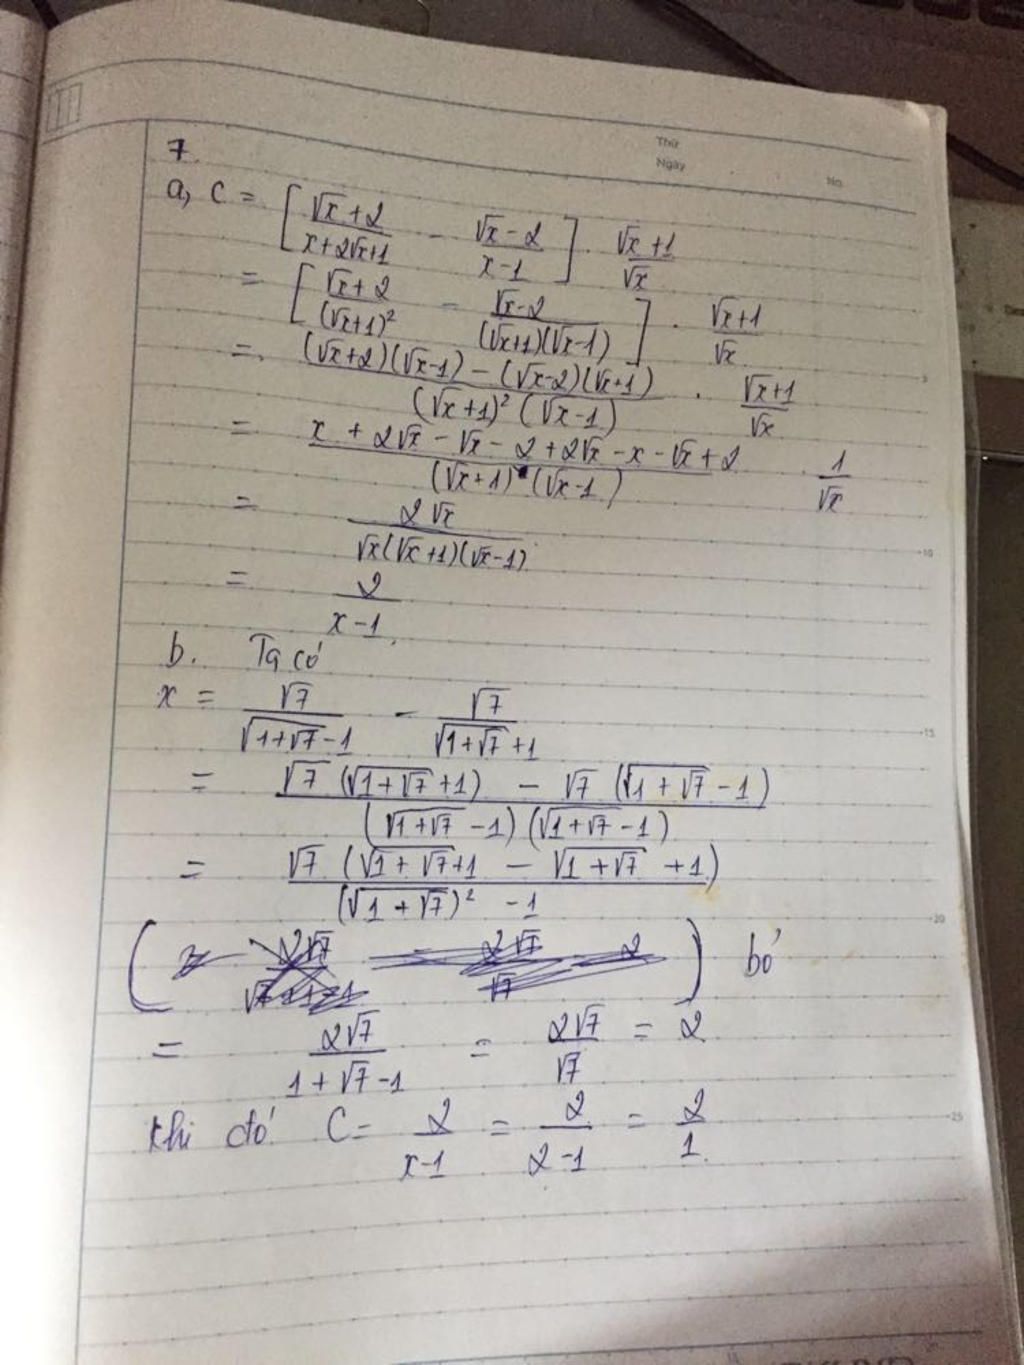 Thứ
Ngày
No.
7.
a, C = [ (√x + 2)/(x + 2√x + 1) - (√x - 2)/(x - 1) ] . (√x + 1)/√x
= [ (√x + 2)/(√x+1)² - (√x - 2)/((√x+1)(√x-1)) ] . (√x+1)/√x
= ((√x+2)(√x-1) - (√x-2)(√x+1))/((√x+1)²(√x-1)) . (√x+1)/√x
= (x + 2√x - √x - 2 + 2√x - x - √x + 2)/((√x+1)(√x-1)) . 1/√x
= 2√x/(√x(√x+1)(√x-1))
= 2/(x-1).
b. Ta có
x = √7/(√(1+√7) - 1) - √7/(√(1+√7) + 1)
= (√7 (√(1+√7) + 1) - √7 (√(1+√7) - 1))/((√(1+√7) - 1)(√(1+√7) - 1))
= √7 (√(1+√7) + 1 - √(1+√7) + 1)/((√(1+√7))² - 1)
( ) bỏ
= 2√7/(1+√7-1) = 2√7/√7 = 2
Khi đó C = 2/(x-1) = 2/(2-1) = 2/1.